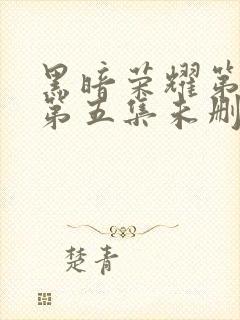 黑暗荣耀第
第五集未删
楚青